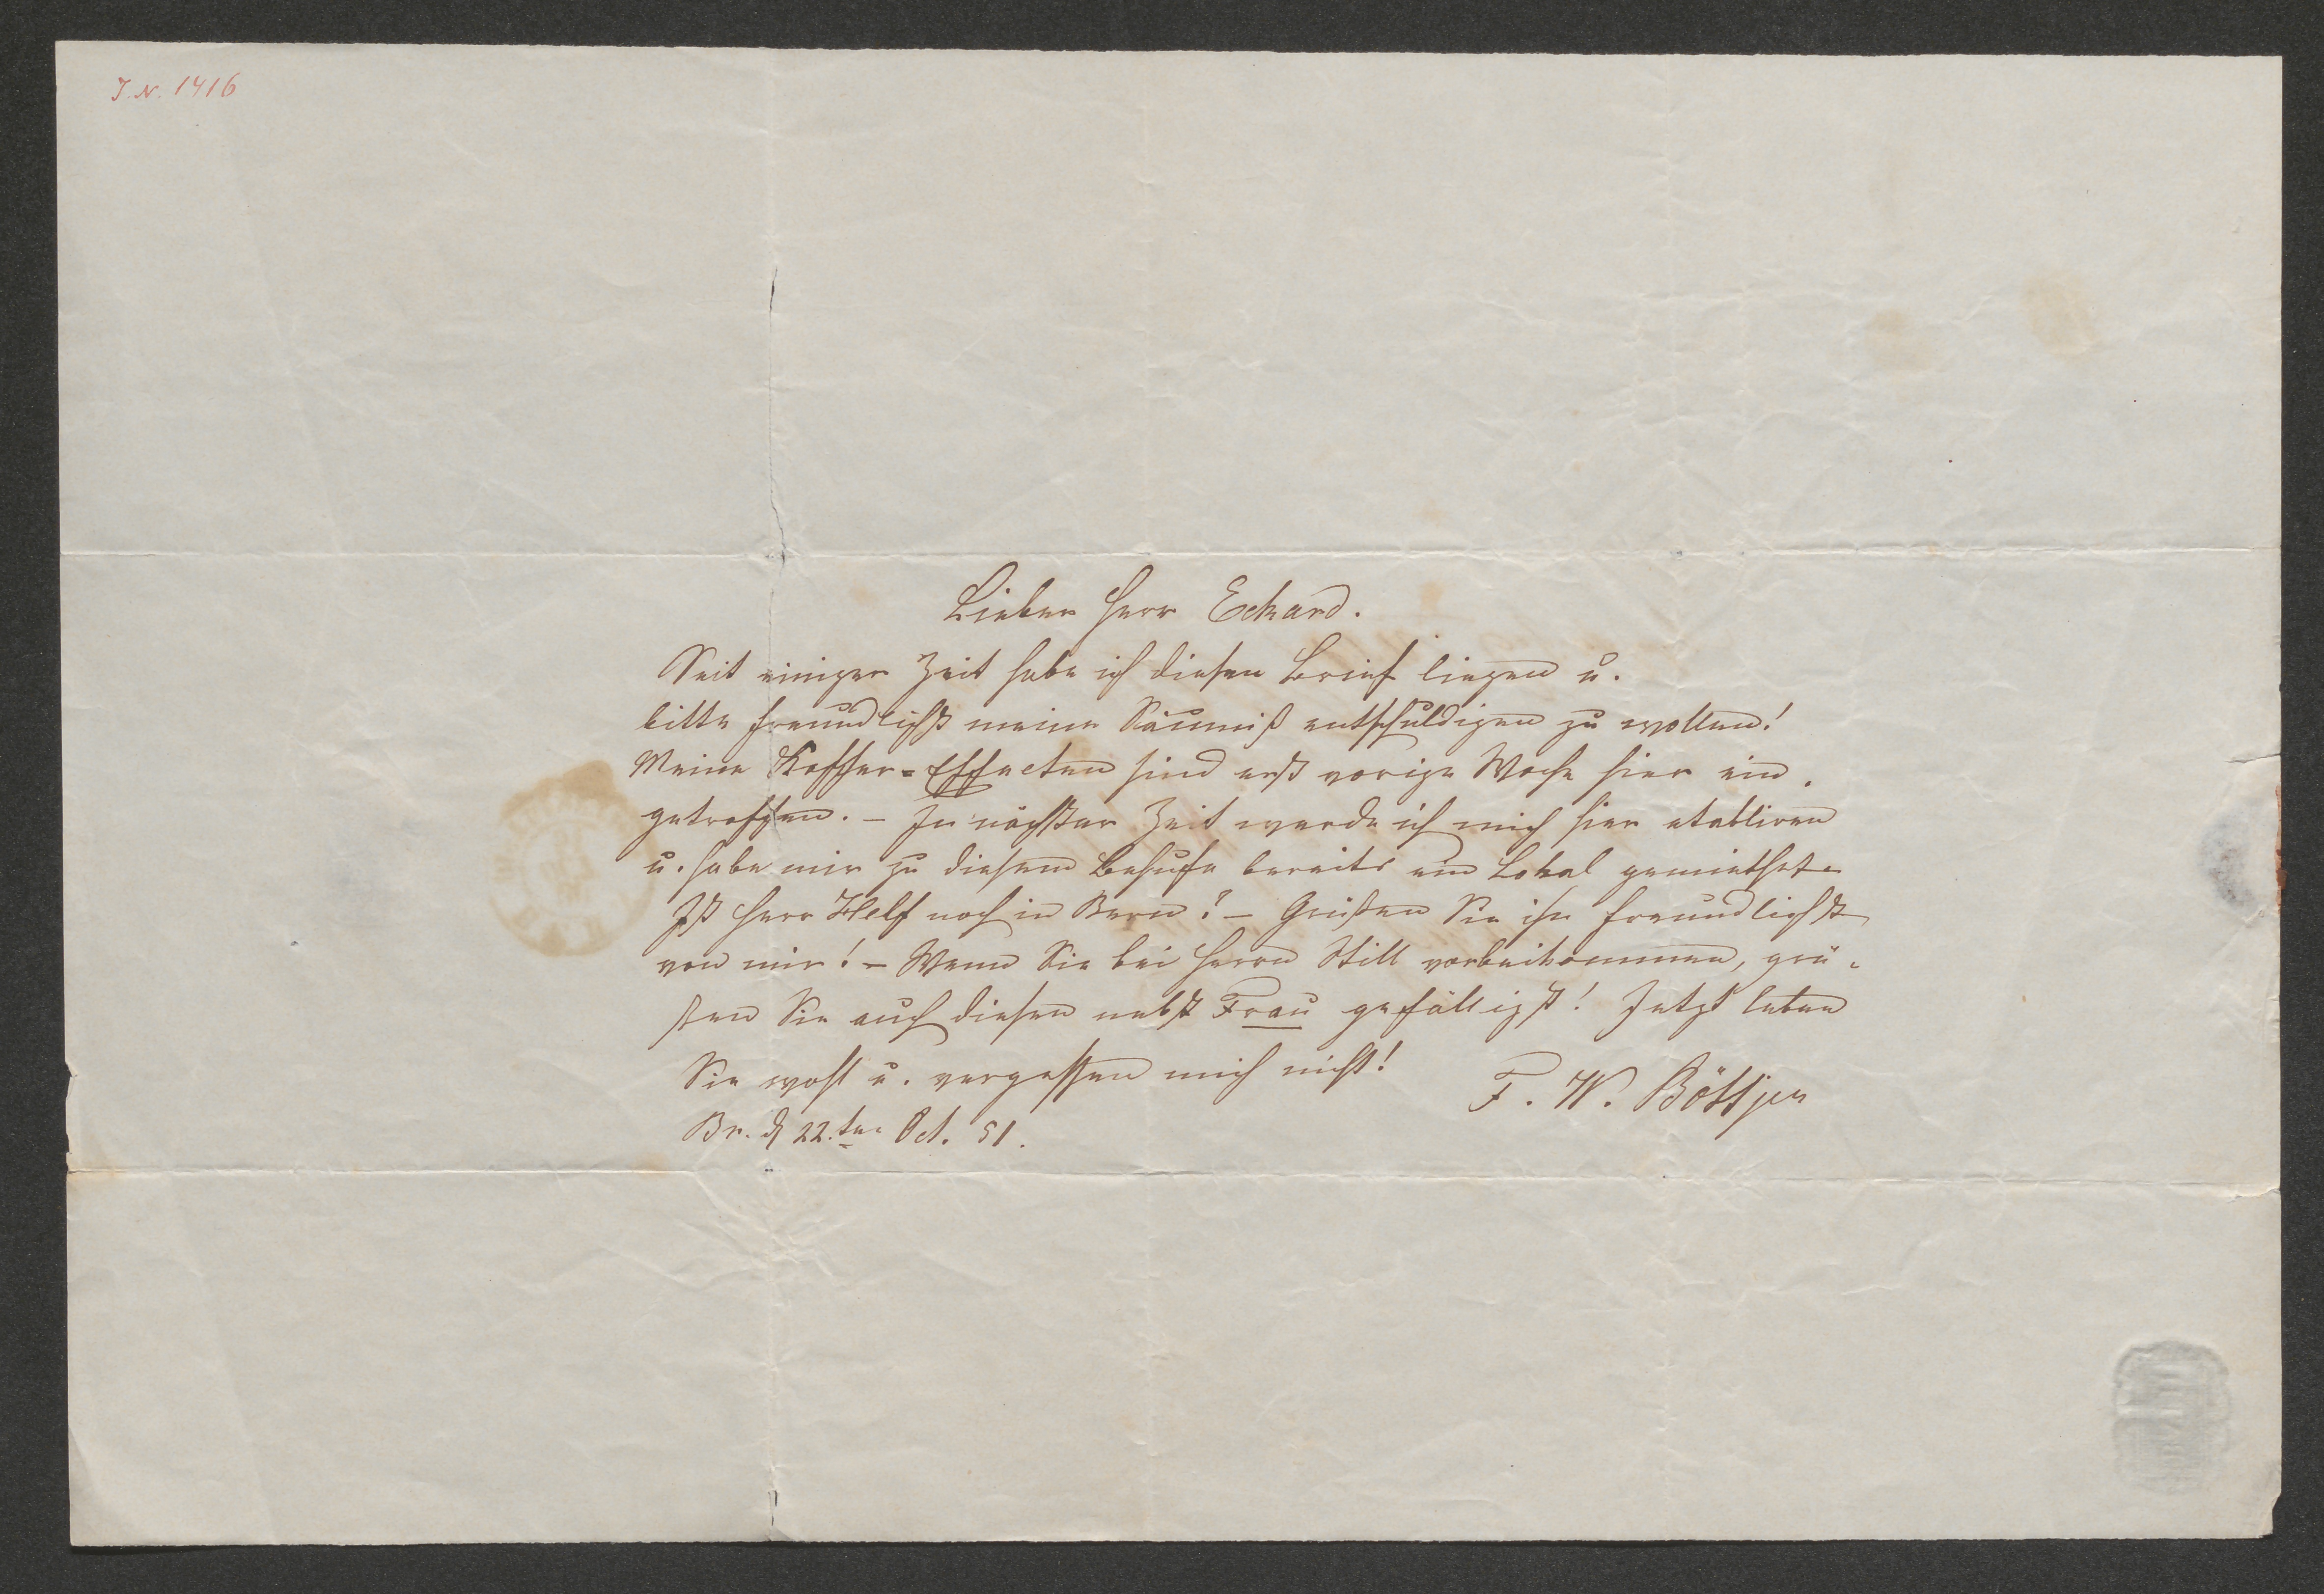 J. N. 1416
Lieber Herr Eckard.
Seit einiger Zeit habe ich diesen Brief liegen u.
bitte freundlichst meine Säumniß entschuldigen zu wollen!
Meine Koffer-Effecten sind erst vorige Woche hier ein-
getroffen. – In nächster Zeit werde ich mich hier etabliren
u. habe mir zu diesem Behufe bereits ein Lokal gemiethet.
Ist Herr Helf noch in Bern? – Grüßen Sie ihn freundlichst
von mir! – Wenn Sie bei Herrn Still vorbeikommen, grü-
ßen Sie auch diesen nebst Frau gefälligst! Jetzt leben
Sie wohl u. vergessen mich nicht!
F. W. Böttjer
Br. d 22.ten Oct. 51.